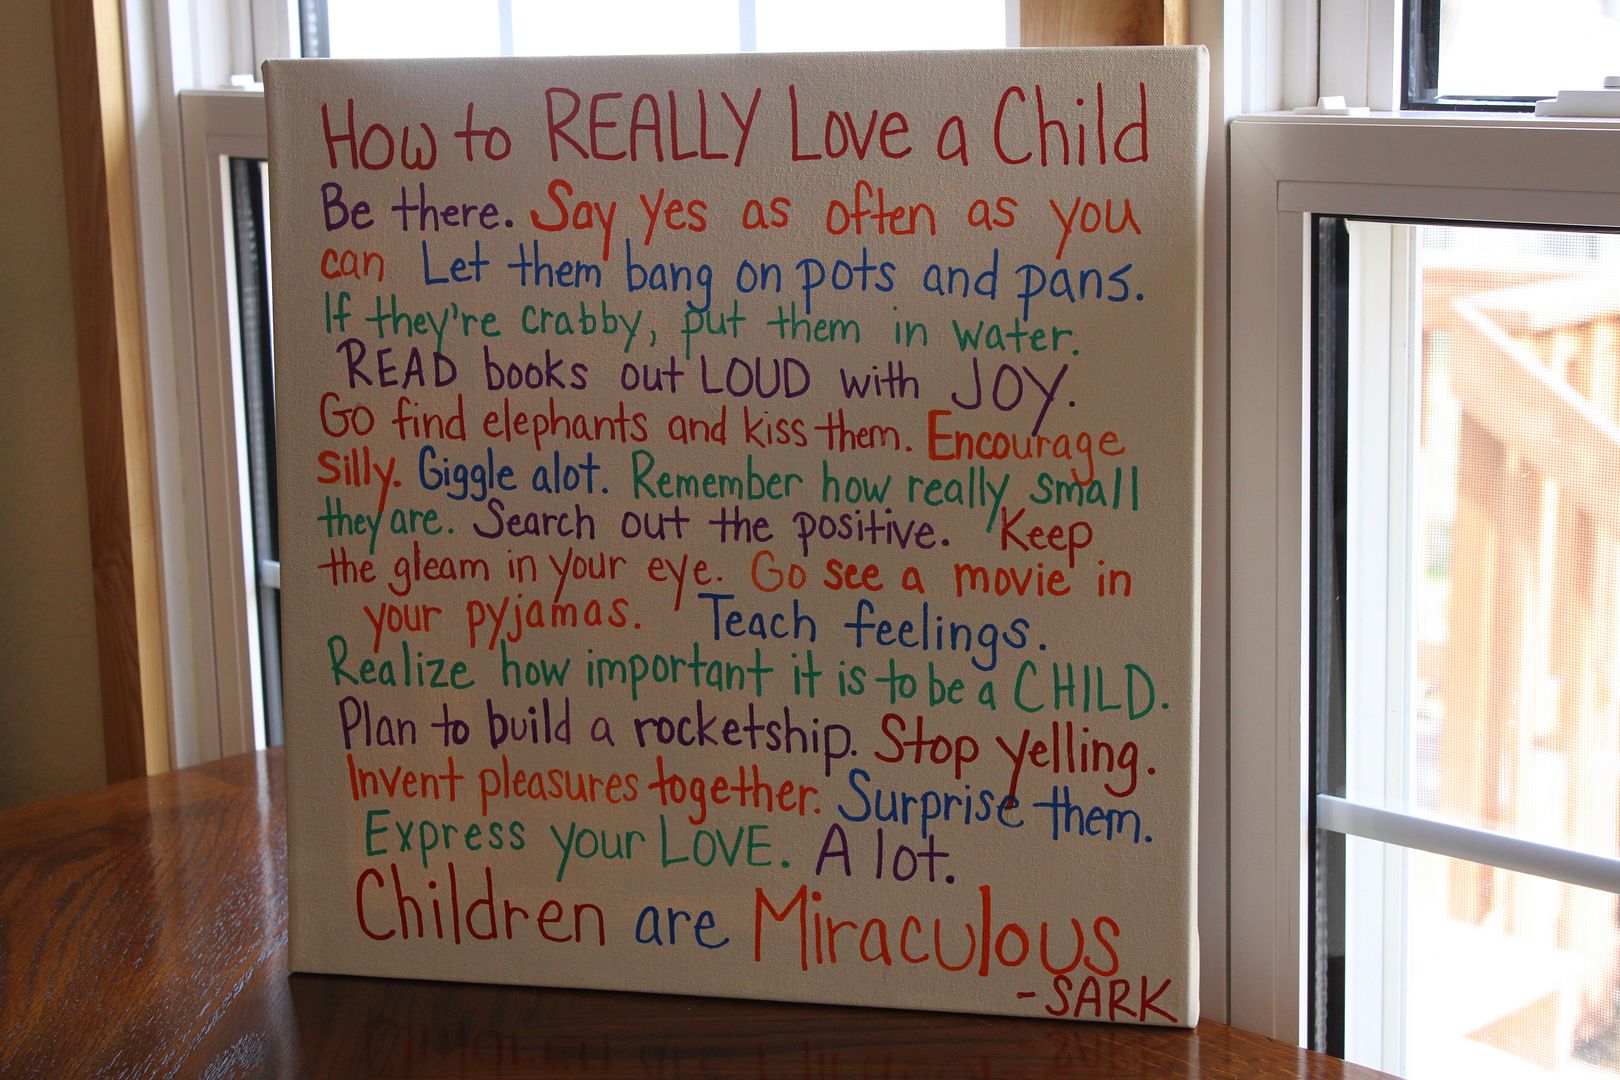 How to REALLY Love a Child
Be there. Say yes as often as you
can Let them bang on pots and pans.
If they're crabby, put them in water.
READ books out LOUD with JOY.
Go find elephants and kiss them. Encourage
Silly. Giggle alot. Remember how really small
they are. Search out the positive. Keep
the gleam in your eye. Go see a movie in
your pyjamas. Teach feelings.
Realize how important it is to be a CHILD.
Plan to build a rocketship. Stop yelling.
Invent pleasures together. Surprise them.
Express your LOVE. A lot.
Children are Miraculous
-SARK